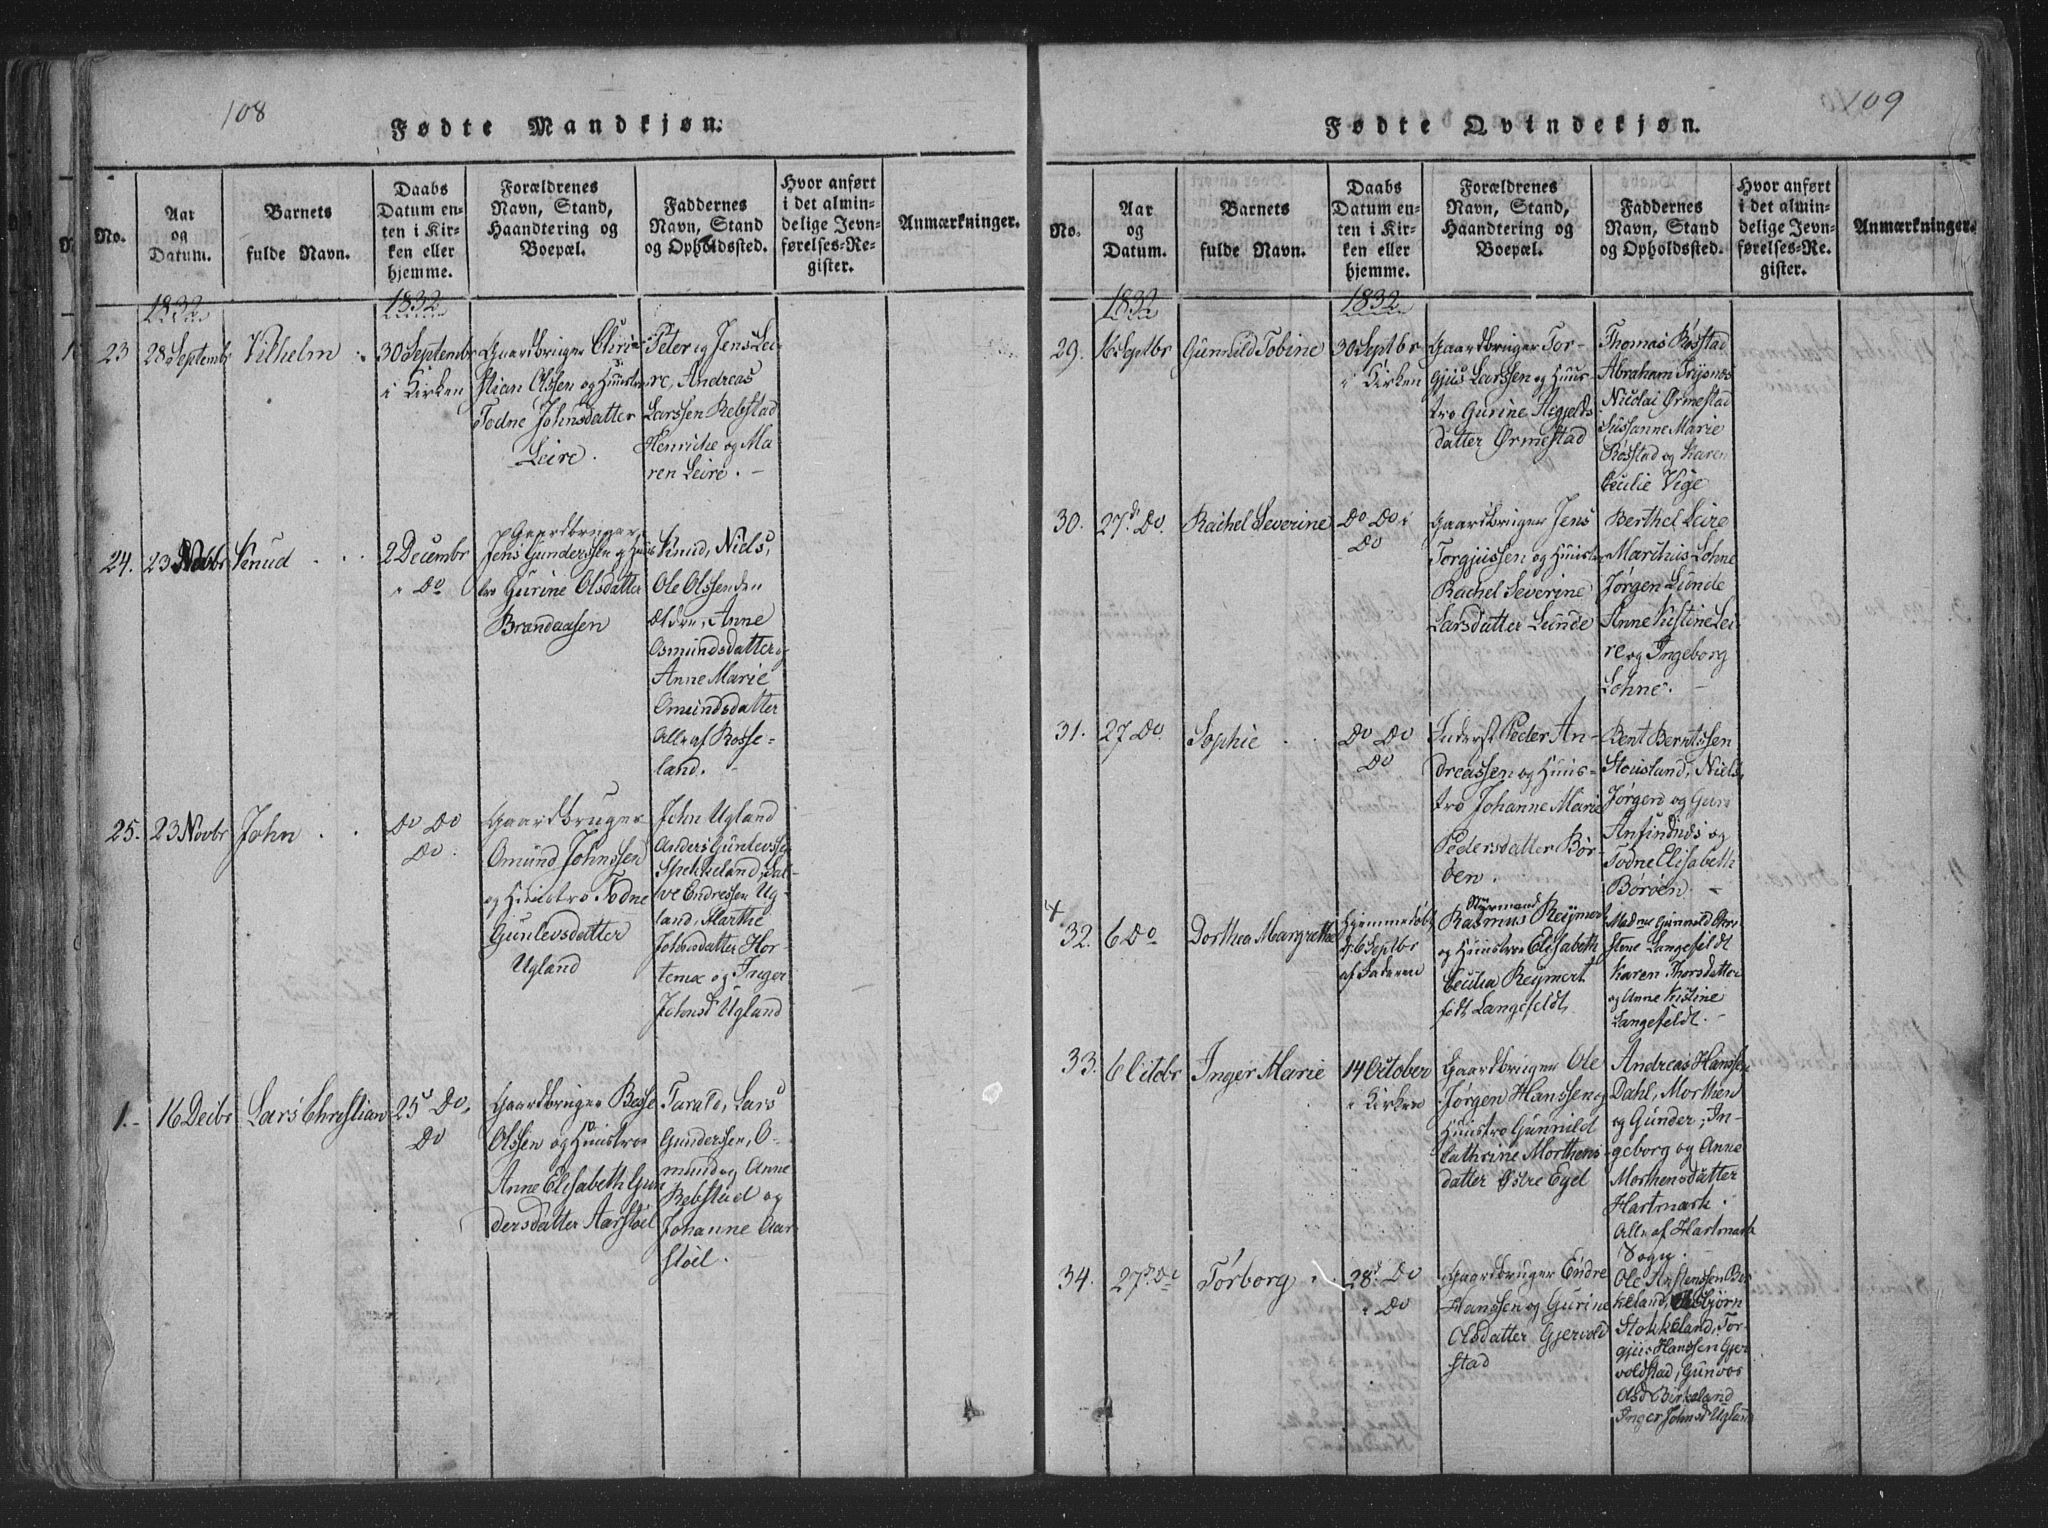 108
Fødte Mandkjøn.
No.
Aar
og
Datum.
Barnets
fulde Navn.
Daabs
Datum en-
ten i Kir-
ken eller
hjemme.
Forældrenes
Navn, Stand,
Haandtering og
Boepæl.
Faddernes
Navn, Stand
og Opholdssted.
Hvor anført
i det almin-
delige Jevn-
førelses-Re-
gister.
Anmærkninger.
1832
1832
23
28 Septembr
Vilhelm
30 Septembr
i Kirken
Gaardbruger Chri-
stian Olssen og Huustru
Todne Johnsdatter
Leire.
Peter og Jens Lei-
re, Andreas
Larssen Rebstad
Henriche og Ma
ren Leire.
24.
23 Novbr
Knud
2 Decembr
i Do
Gaardbruger
Jens Gunderssen og Huus
tro Gurine Olsdatter
Brændaasen
Knud, Niels,
Ole Olssen den
Ældre, Anne
Osmundsdatter og
Anne Marie
Omundsdatter
Alle af Rosse-
land.
25.
23 Novbr
John
Do Do
Do.
Gaardbruger
Omund Johnssen
og Huustro Todne
Gunlevsdatter
Ugland
John Ugland
Anders Gunlevssen
Stokkeland, Sal-
ve Endressen Ug-
land, Marthe
Johnsdatter Hor-
temo og Inger
Johnsd Ugland
1.
16 Decbr
Lars Christian
25 Do.
Do
Gaardbruger Bosse
Olssen og Huustro
Anne Elisabeth Gun
dersdatter Aarstøel
Tarald, Lars
Gunderssen, O-
mund og Anne
Rebstad og
Johanne Aar
støel.
109
Fødte Qvindekjøn.
No.
Aar
og
Datum.
Barnets
fulde Navn.
Daabs
Datum en-
ten i Kir-
ken eller
hjemme.
Forældrenes
Navn, Stand,
Haandtering og
Boepæl.
Faddernes
Navn, Stand
og Opholdssted.
Hvor anført
i det almin-
delige Jevn-
førelses-Re-
gister.
Anmærkninger.
1832
1832
29.
16 Septbr
Gunnild Tobine
30 Septbr
i Kirken
Gaardbruger Tor-
gjus Larssen og Huus-
tro Gurine
datter Ørmestad
Thomas Røsstad
Abraham Trysnæs
Nicolai Ørmestad
Susanne Marie
Røsstad og Karen
Cecilie Vige
30.
27. Do
Rachel Severine
Do Do i
Do
Gaardbruger Jens
Torgjussen og Huustro
Rachel Severine
Larsdatter Lunde
Berthel Leire
Mathis Lohne
Jørgen Lunde
Anne Kistine Lei-
re og Ingeborg
Lohne.
31.
27 Do.
Sophie
Do Do
Do
Inderst Peder An-
dreassen og Huus-
tro Johanne Marie
Pedersdatter Bør-
øen.
Bent Berntssen
Stousland, Niels,
Jørgen og Guri
Anfindnæs og
Todne Elisabeth
Børøen.
32.
6 Do
Dorthea Margrethe
Hjemmedøbt
d. 6 Septbr
af Faderen
Styrmand
Rasmus Reymert
og Huustroe Elisabeth
Cecilia Reymert
født Langefeldt
Madme Gunnild Chri-
stone Langefeldt
Karen Thorsdatter
og Anne Kistine
Langefeldt.
33.
6 Octobr
Inger Marie
14 October
i Kirken
Gaardbruger Ole
Jørgen Hanssen og
Huustro Gunnild
Cathrine Morthens-
datter Østre Egel
Andreas Hanssen
Dahl, Morthen
og Gunder, In-
geborg og Anne
Morthensdatter
Hartmark.
Alle af Hartmark
Sogn.
34.
27. Do
Torborg
28. Do
i Do
Gaardbruger Endre
Hanssen og Gurine
Olsdatter Gjervold
stad
Ole Torstenssen Bir
keland, Asbjørn
Stokkeland, Tor-
gjus Hanssen Gjer
voldstad, Gunvor
Olsd Birkeland
Inger Johnsd Ugland